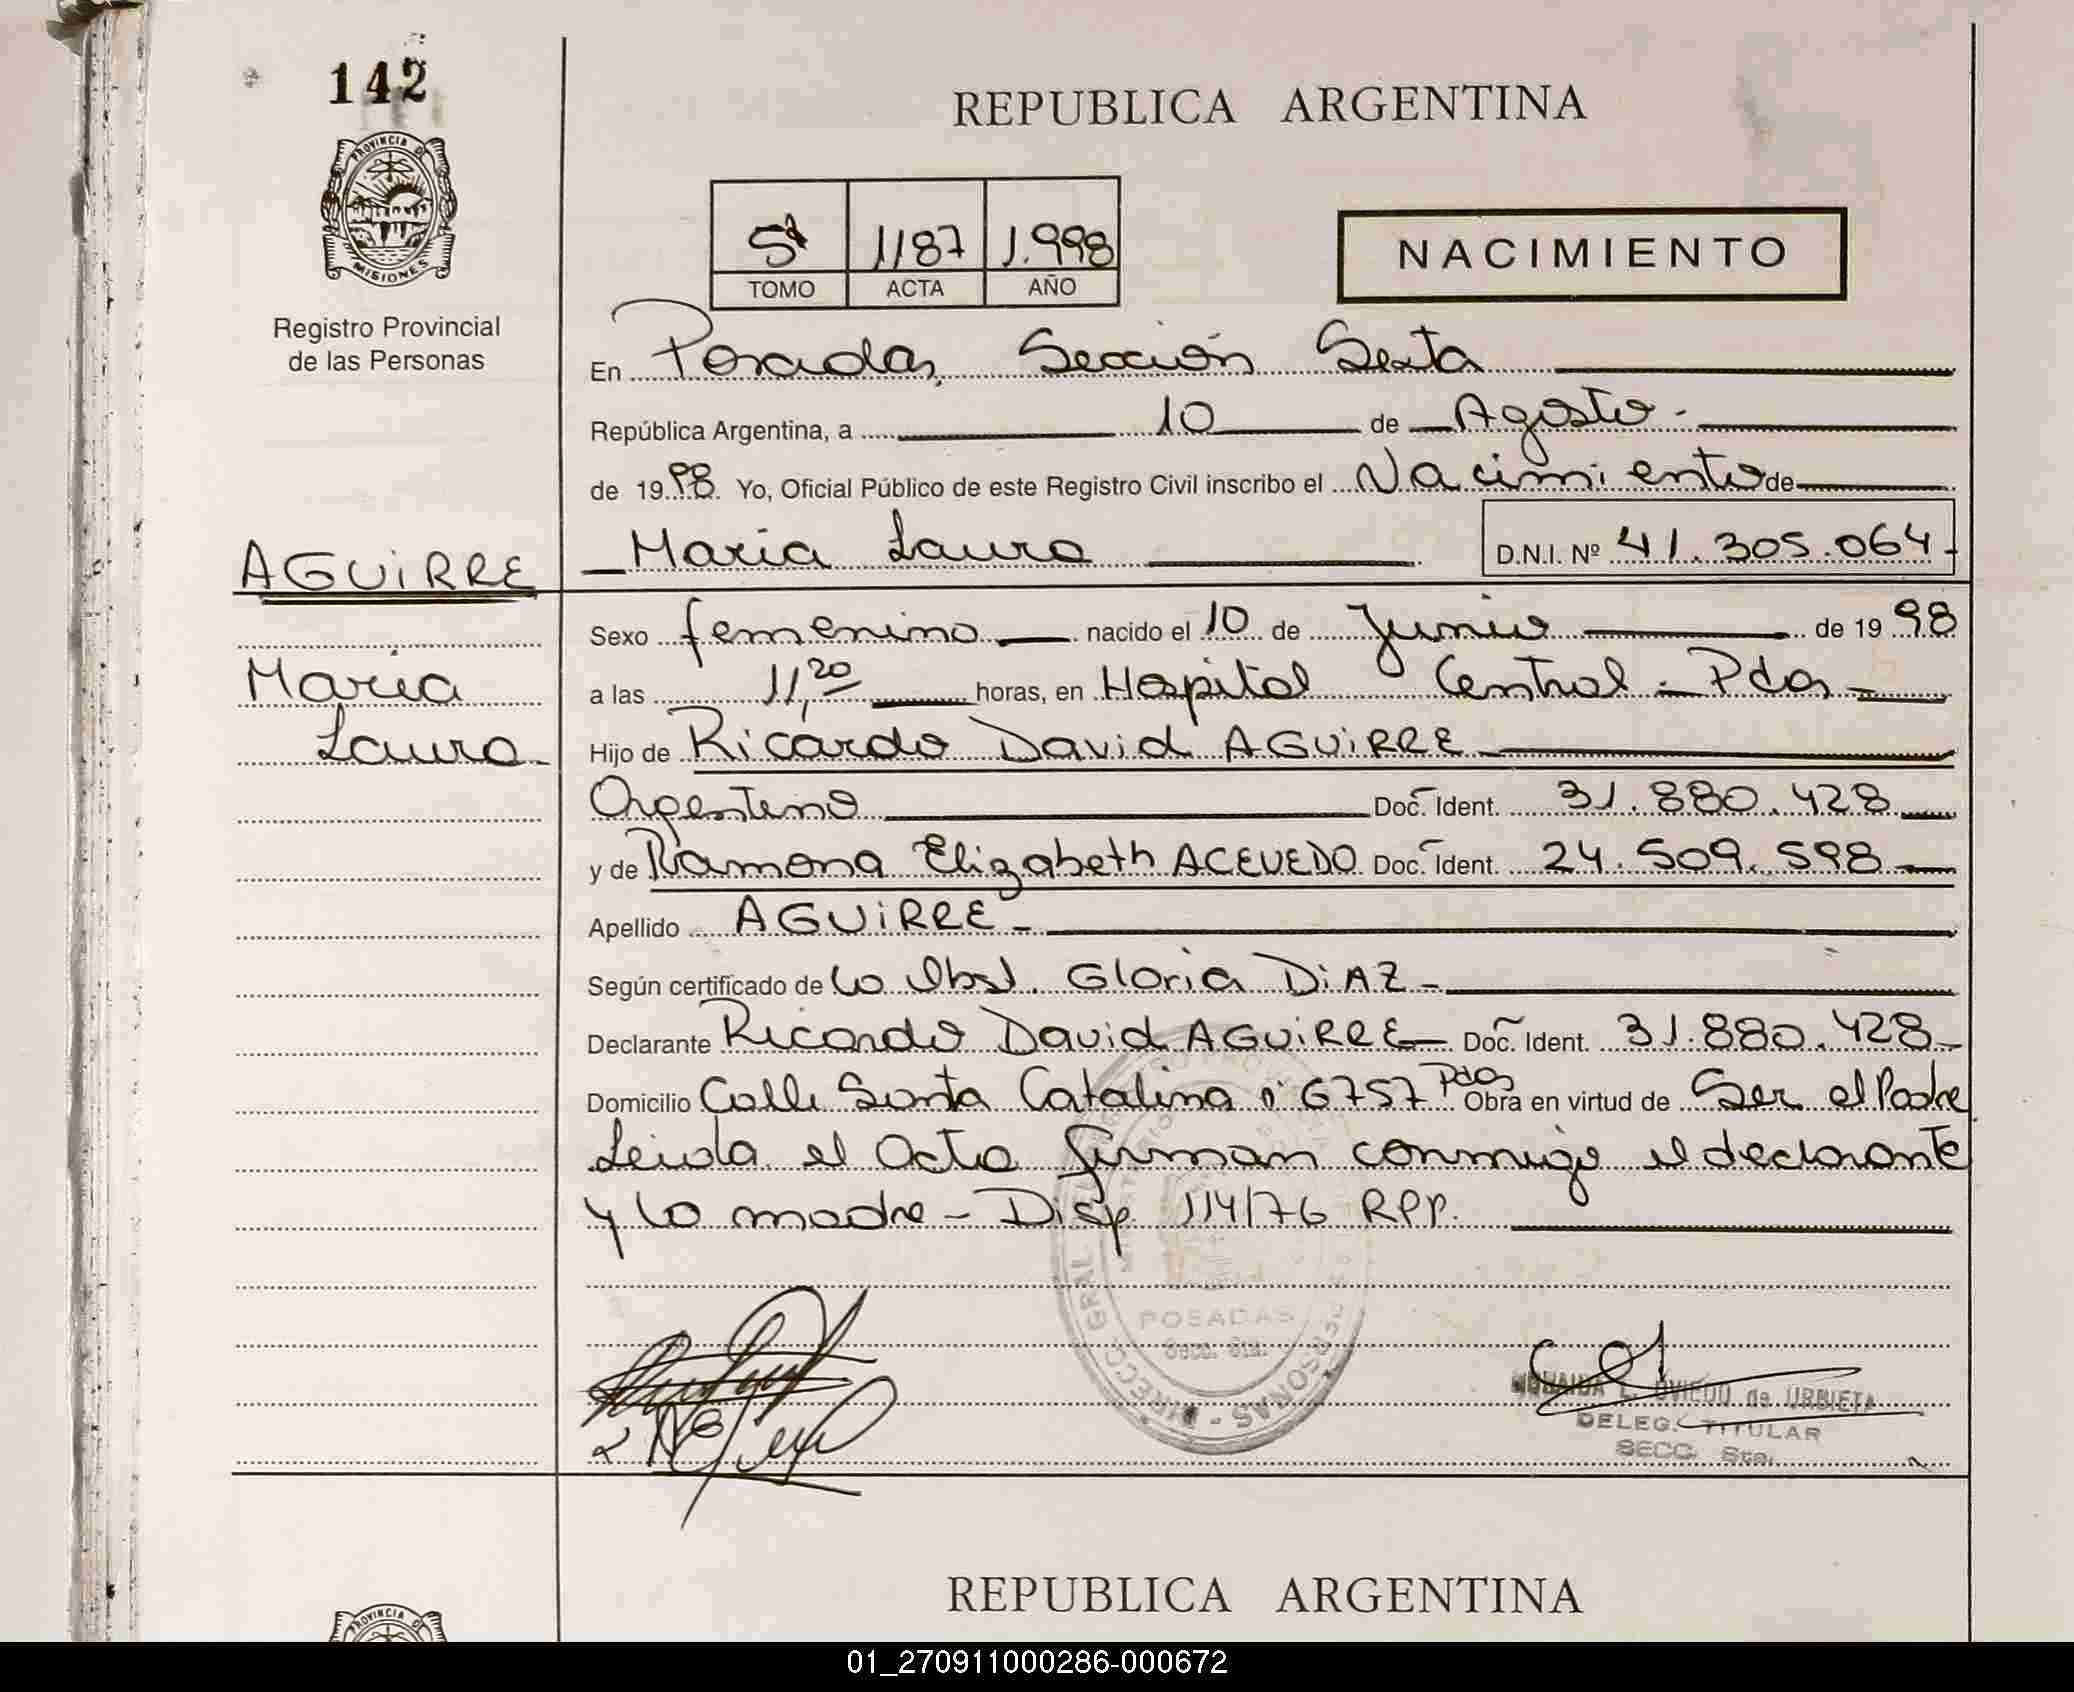 142
PROVINCIA DE
MISIONES
Registro Provincial
de las Personas
REPUBLICA ARGENTINA
5ª 1187 1.998
TOMO ACTA AÑO
NACIMIENTO
En Posadas, Sección Sexta
República Argentina, a 10 de Agosto -
de 1998. Yo, Oficial Público de este Registro Civil inscribo el Nacimiento de
AGUiRRE
Maria Laura D.N.I. Nº 41.305.064-
Sexo femenino nacido el 10 de Junio de 1998
Maria
Laura
a las 11,20 horas, en Hospital Central - Pdas -
Hijo de Ricardo David AGUiRRE
Argentino Doc. Ident. 31.880.428
y de Ramona Elizabeth ACEVEDO Doc. Ident. 24.509.598
Apellido AGUiRRE -
Según certificado de la Obst. Gloria DiAZ -
Declarante Ricardo David AGUiRRE Doc. Ident. 31.880.428-
Domicilio Calle Santa Catalina 6757 Pdas Obra en virtud de Ser el Padre
Leida el Acta firman conmigo el declarante
y la madre - Disp. 114/76 RPP.
POSADAS
Secc. 6ta.
OVIEDO de URBIETA
DELEG. TITULAR
SECC. 6ta.
REPUBLICA ARGENTINA
PROVINCIA DE
01_270911000286-000672